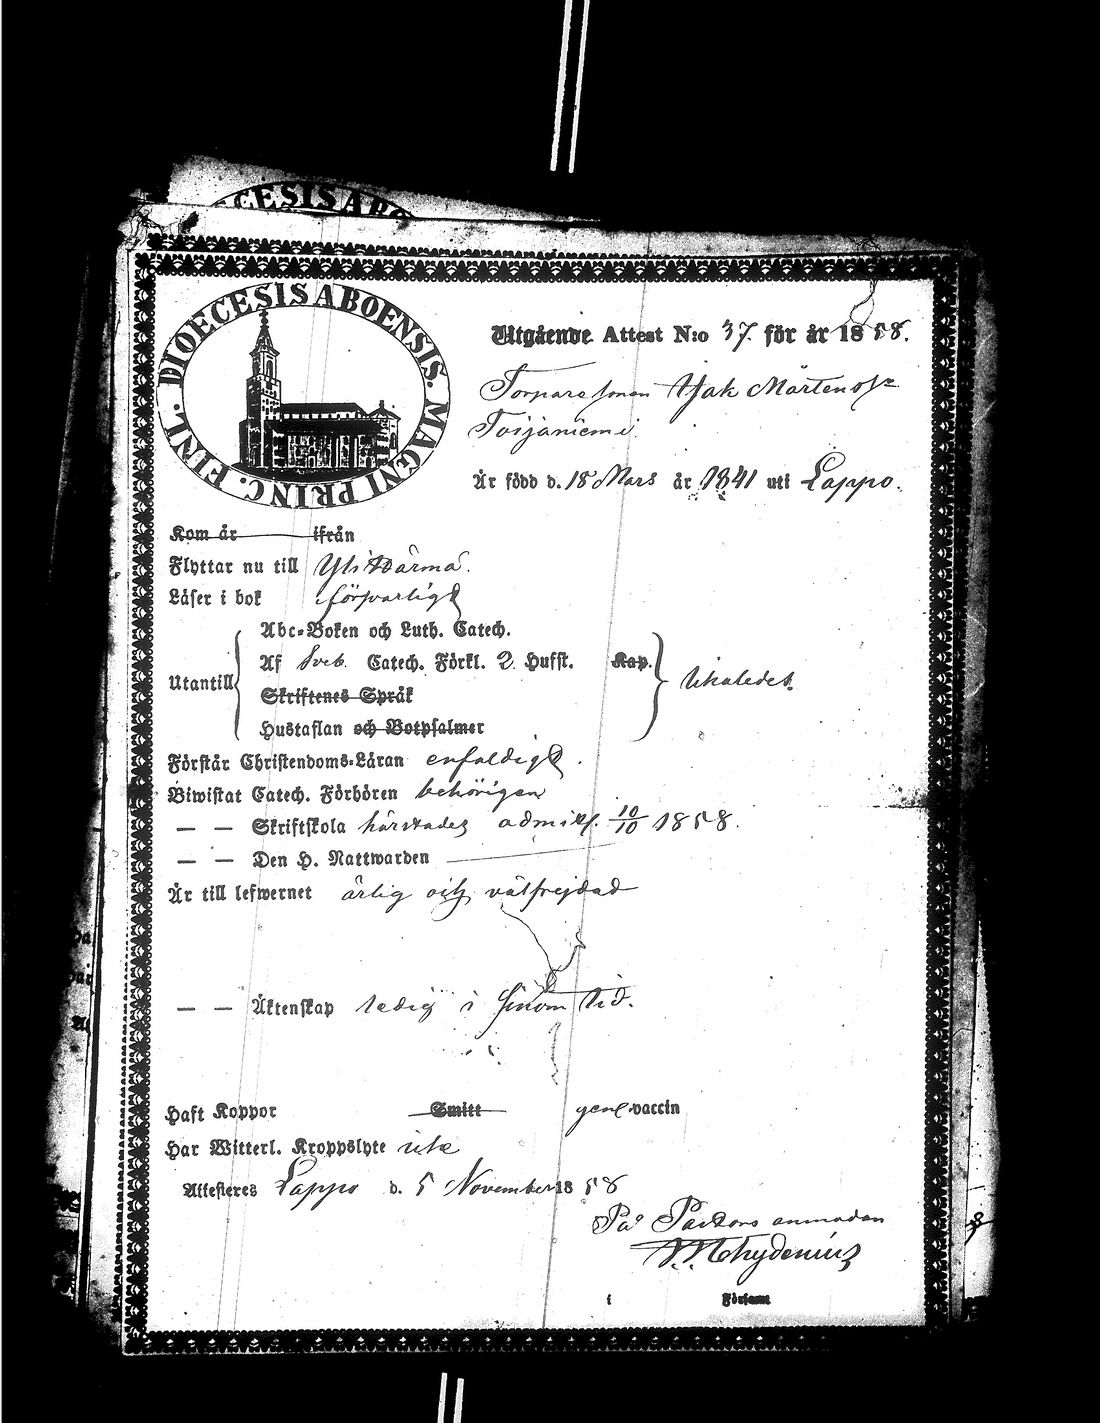 DIOECESIS ABO
DIOECESIS ABOENSIS. MAGNI PRINC. FINL.
Utgående Attest N:o 37. för år 1858.
Torparesonen Isak Mårtenss:
Toijaniemi
Är född d. 18 Mars år 1841 uti Lappo.
Kom år ifrån
Flyttar nu till Yli Härmä.
Läser i bok försvarligt
Abc-Boken och Luth. Catech.
Af Sveb. Catech. Förkl. 2 Hufst. Kap.
Utantill likaledes.
Skriftenes Språk
Hustaflan och Botpsalmer
Förstår Christendoms-Läran enfaldigt.
Biwistat Catech. Förhören behörigen
— — Skriftskola härstädes admitt. 10/10 1858.
— — Den H. Nattwarden
Är till lefwernet ärlig och välfrejdad
— — Äktenskap ledig i sinom tid.
Haft Koppor Smitt genom vaccin
Har Witterl. Kroppslyte icke
Attesteras Lappo d. 5 November 1858
På Pastors anmodan
Chydenius
i Församl